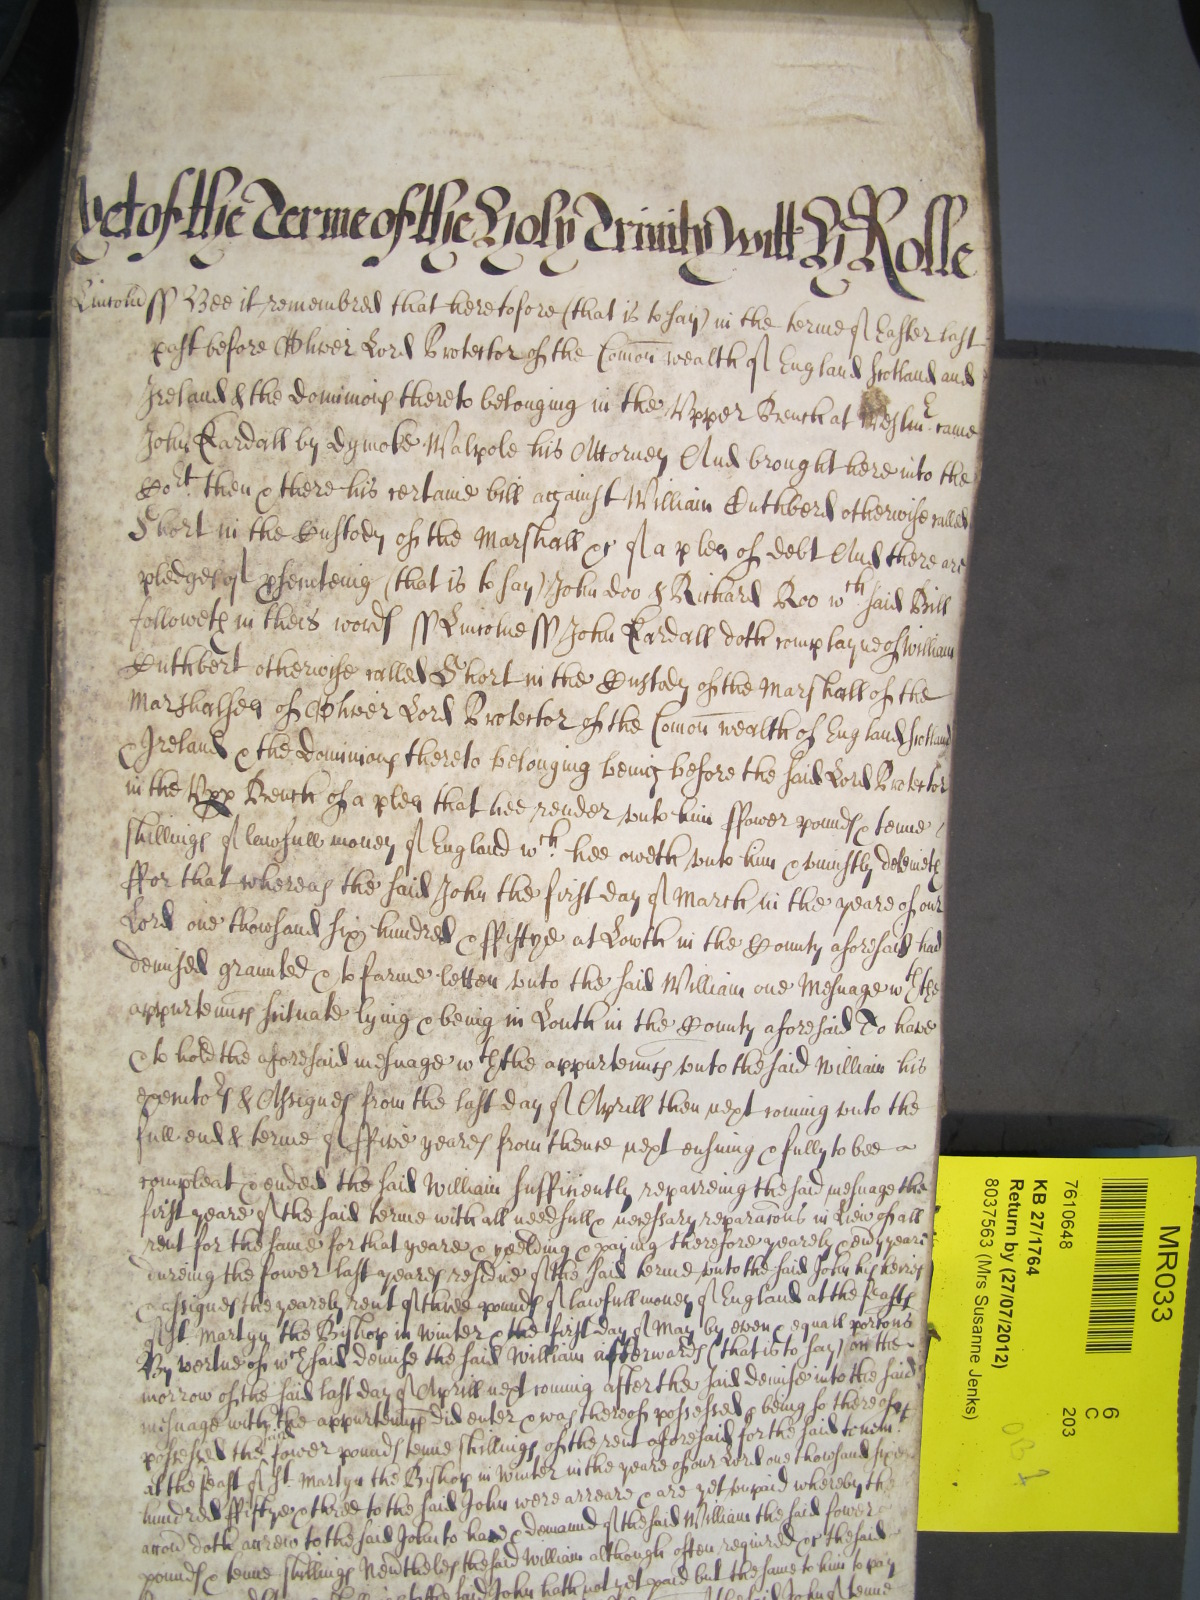 yet of the Terme of the Holy Trinity witt Hy Rolle
Lincoln ss Bee it remembred that heretofore (that is to say) in the terme of Easter last
past before Oliver Lord Protector of the Comon wealth of England Scotland and
Ireland & the dominions thereto belonging in the Upper Bench at Westm came
John Kardall by Dymoke Walpole his Attorney And brought here into the
Cort then & there his certaine bill against William Cuthberd otherwise called
Short in the Custody of the Marshall &c of a plea of debt And there are
pledges of psenteing (that is to say) John doo & Richard Roo wch said Bill
followeth in theis words ss Lincolne ss John Kardall doth complayne of William
Cuthbert otherwise called Short in the Custody of the Marshall of the
Marshalsea of Oliver Lord Protector of the Comon wealth of England Scotland
& Ireland & the dominions thereto belonging being before the said Lord Protector
in the Upp Bench of a plea that hee render unto him ffower pounds & tenne
shillings of lawfull money of England wch hee oweth unto him & uniustly deteineth
ffor that whereas the said John the first day of March in the yeare of our
Lord one thowsand six hundred & ffiftye at Lowth in the County aforesaid had
demised graunted & to farme letten unto the said William one Mesuage wth the
appurtenncs scituate lying & being in Louth in the County aforesaid To have
& to hold the aforesaid mesuage wth the appurtenncs unto the said William his
executors & Assignes from the last day of Aprill then next coming unto the
full end & terme of ffive yeares from thence next ensuing & fully to bee
compleat & ended the said William sufficiently repaireing the said mesuage the
first yeare of the said terme with all needfull & necessary reparacons in Liew of all
rent for the same for that yeare & yeelding & paying therefore yearely & evy yeare
dureing the fower last yeares residue of the said terme unto the said John his heires
& assignes the yearely rent of three pounds of lawfull money of England at the feasts
of St Martyn the Bishop in Winter & the first day of May by even & equall porcons
By vertue of wch said demise the said William afterwards (that is to say) on the
morrow of the said last day of Aprill next coming after the said demise into the said
mesuage with the appurtenncs did enter & was thereof possessed & being so thereof
possessed the said fower pounds tenne shillings of the rent aforesaid for the said
at the feast of St Martyn the Bishop in Winter in the yeare of our Lord one thowsand six
hundred ffiftye & three to the said John were arreare & are yet unpaid whereby the
accon doth accrew to the said John to have & demaund of the said William the said fower
pounds & tenne shillings Nevtheles the said William although often required &c the said
the said John hath not yet paid but the same to him to pay
the said John of tenne
MR033
7610648
6
C
203
KB 27/1764
Return by (27/07/2012)
8037563 (Mrs Susanne Jenks)